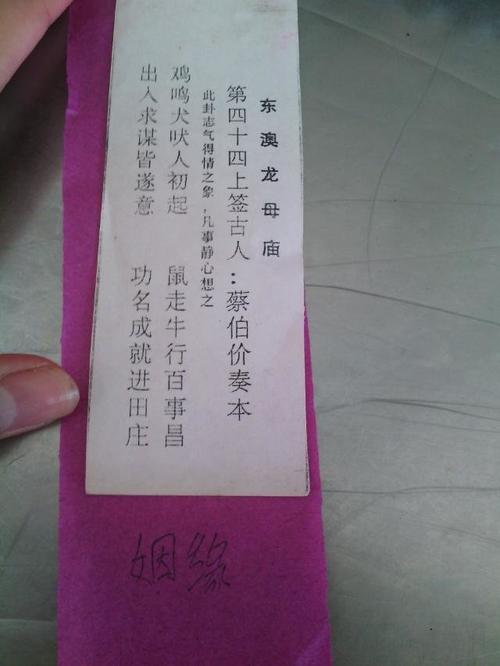 东澳龙母庙
第四十四上签古人：蔡伯价奏本
此卦志气得情之象，凡事静心想之
鸡鸣犬吠人初起 鼠走牛行百事昌
出入求谋皆遂意 功名成就进田庄
姻缘